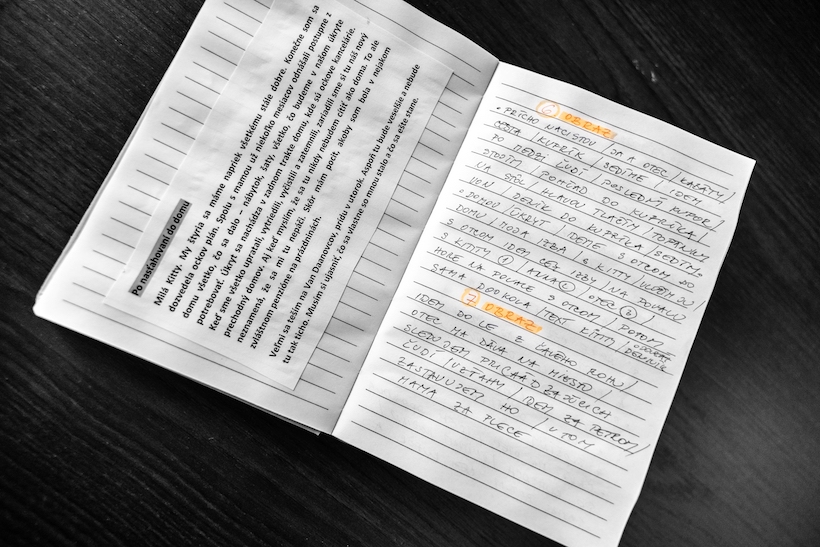 Po nasťahovaní do domu
Milá Kitty. My štyria sa máme napriek všetkému stále dobre. Konečne som sa
dozvedela ockov plán. Spolu s mamou už niekoľko mesiacov odnášali postupne z
domu všetko, čo sa dalo – nábytok, šaty, všetko, čo budeme v našom úkryte
potrebovať. Úkryt sa nachádza v zadnom trakte domu, kde sú ockove kancelárie.
Keď sme všetko upratali, vytriedili, vyčistili a zatemnili, zariadili sme si tu náš nový
prechodný domov. Aj keď myslím, že sa tu nikdy nebudem cítiť ako doma. To ale
neznamená, že sa mi tu nepáči. Skôr mám pocit, akoby som bola v nejakom
zvláštnom penzióne na prázdninách.
Veľmi sa teším na Van Daanovcov, prídu v utorok. Aspoň tu bude veselšie a nebude
tu tak ticho. Musím si ujasniť, čo sa vlastne so mnou stalo a čo sa ešte stane.
6 OBRAZ
JA A OTEC / KABÁTY /
CESTA / KUFRÍK / SEDÍME / IDEM
PO MEDZI ĽUDÍ / POSLEDNÝ KUFOR /
STOJÍM / POHĽAD DO KUFRÍČKA /
NA STÔL / HLAVOU TLAČÍM / TOPÁNKY
VON / DENÍK DO KUFRÍKA / SEDÍM
DOMOV / ÚKRYT / IDEME S OTCOM DO
DOMU / MOJA IZBA S KITTY /
S OTCOM IDEM CEZ IZBY / NA POVALU
S KITTY 1 / 2 OTEC 3 /
HORE NA POVALE S OTCOM / POTOM
SAMA DOOKOLA / TEXT KITTY /
7 OBRAZ
IDEM DO ĽAVÉHO ROHU /
OTEC MA DÁVA NA MIESTO /
SLEDUJEM
ĽUDÍ / VZŤAHY / IDEM ZA PETROM /
ZASTAVUJEM HO / V TOM
MAMA ZA PLECE